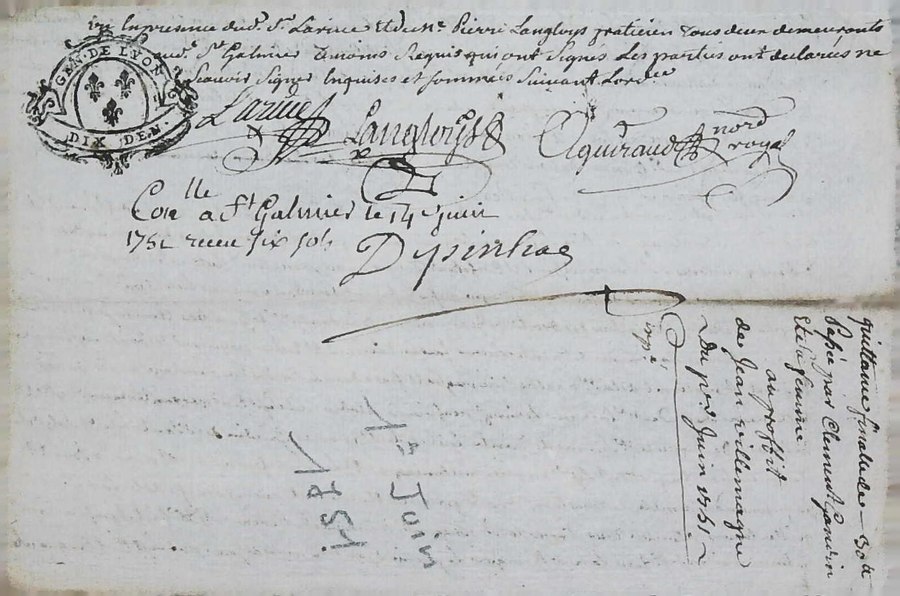 En presence dud. Sr. Larive et de Me. Pierre Langloys praticien tous deux demeurants
aud. St. Galmier temoins Requis qui ont Signés Les parties ont declarées ne
Scavoir Signer Enquises et sommées Suivant Lordce
GEN. DE LYON
DIX DEN.
Larive
Langloys
Aguiraud nore
royal
Conlle a St. Galmier le 14 juin
1751 receu six sols
quittance finale de 30 #
passée par Clement
Et sa femme
au proffit
de Jean Villemagne
Du per. Juin 1751
1er Juin
1751